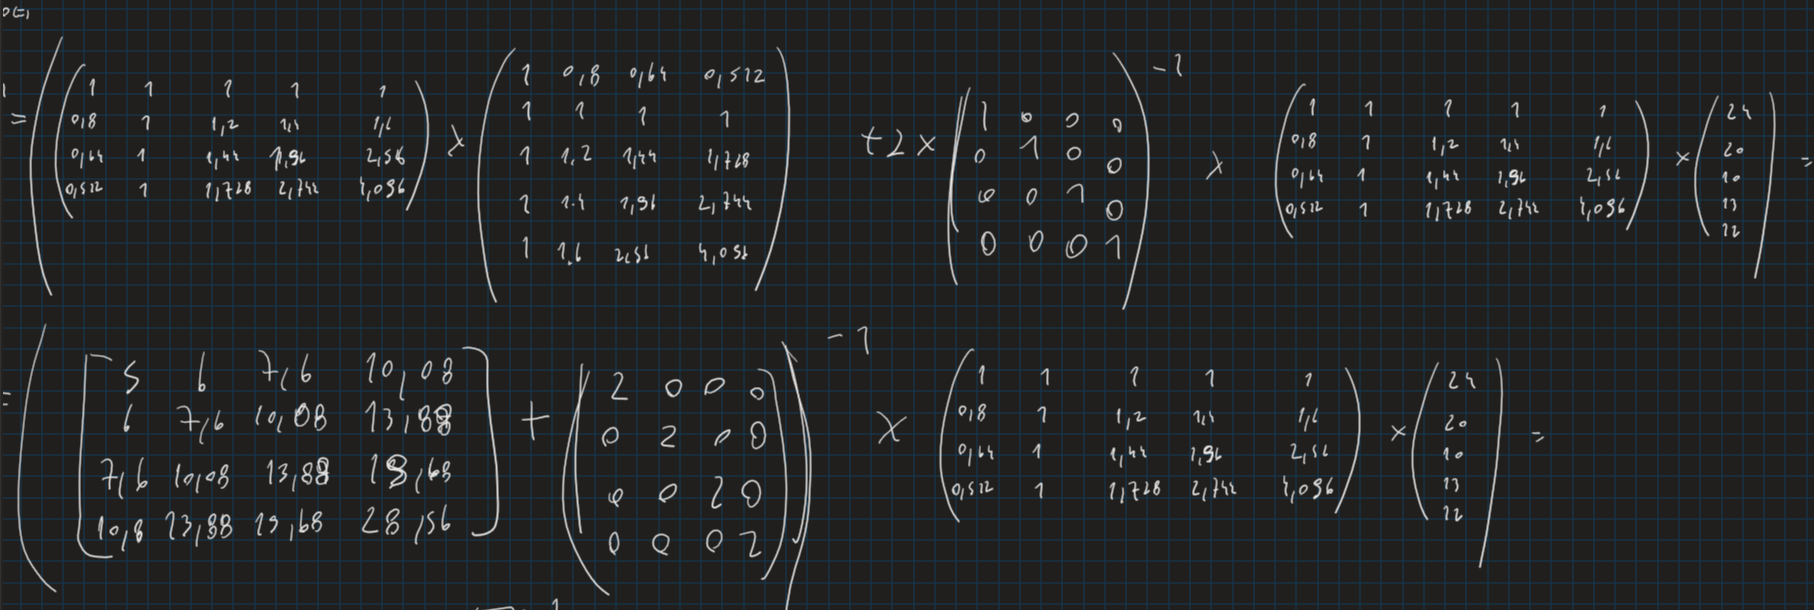 1 1 1 1 1
0,8 1 1,2 1,4 1,6
0,64 1 1,44 1,96 2,56
0,512 1 1,728 2,744 4,096
×
1 0,8 0,64 0,512
1 1 1 1
1 1,2 1,44 1,728
1 1.4 1,96 2,744
1 1.6 2,56 4,096
+ 2 ×
1 0 0 0
0 1 0 0
0 0 1 0
0 0 0 1
-1
×
1 1 1 1 1
0,8 1 1,2 1,4 1,6
0,64 1 1,44 1,96 2,56
0,512 1 1,728 2,744 4,096
×
24
20
10
13
12
=
=
5 6 7,6 10,08
6 7,6 10,08 13,88
7,6 10,08 13,88 19,68
10,8 13,88 19,68 28,56
+
2 0 0 0
0 2 0 0
0 0 2 0
0 0 0 2
-1
×
1 1 1 1 1
0,8 1 1,2 1,4 1,6
0,64 1 1,44 1,96 2,56
0,512 1 1,728 2,744 4,096
×
24
20
10
13
12
=